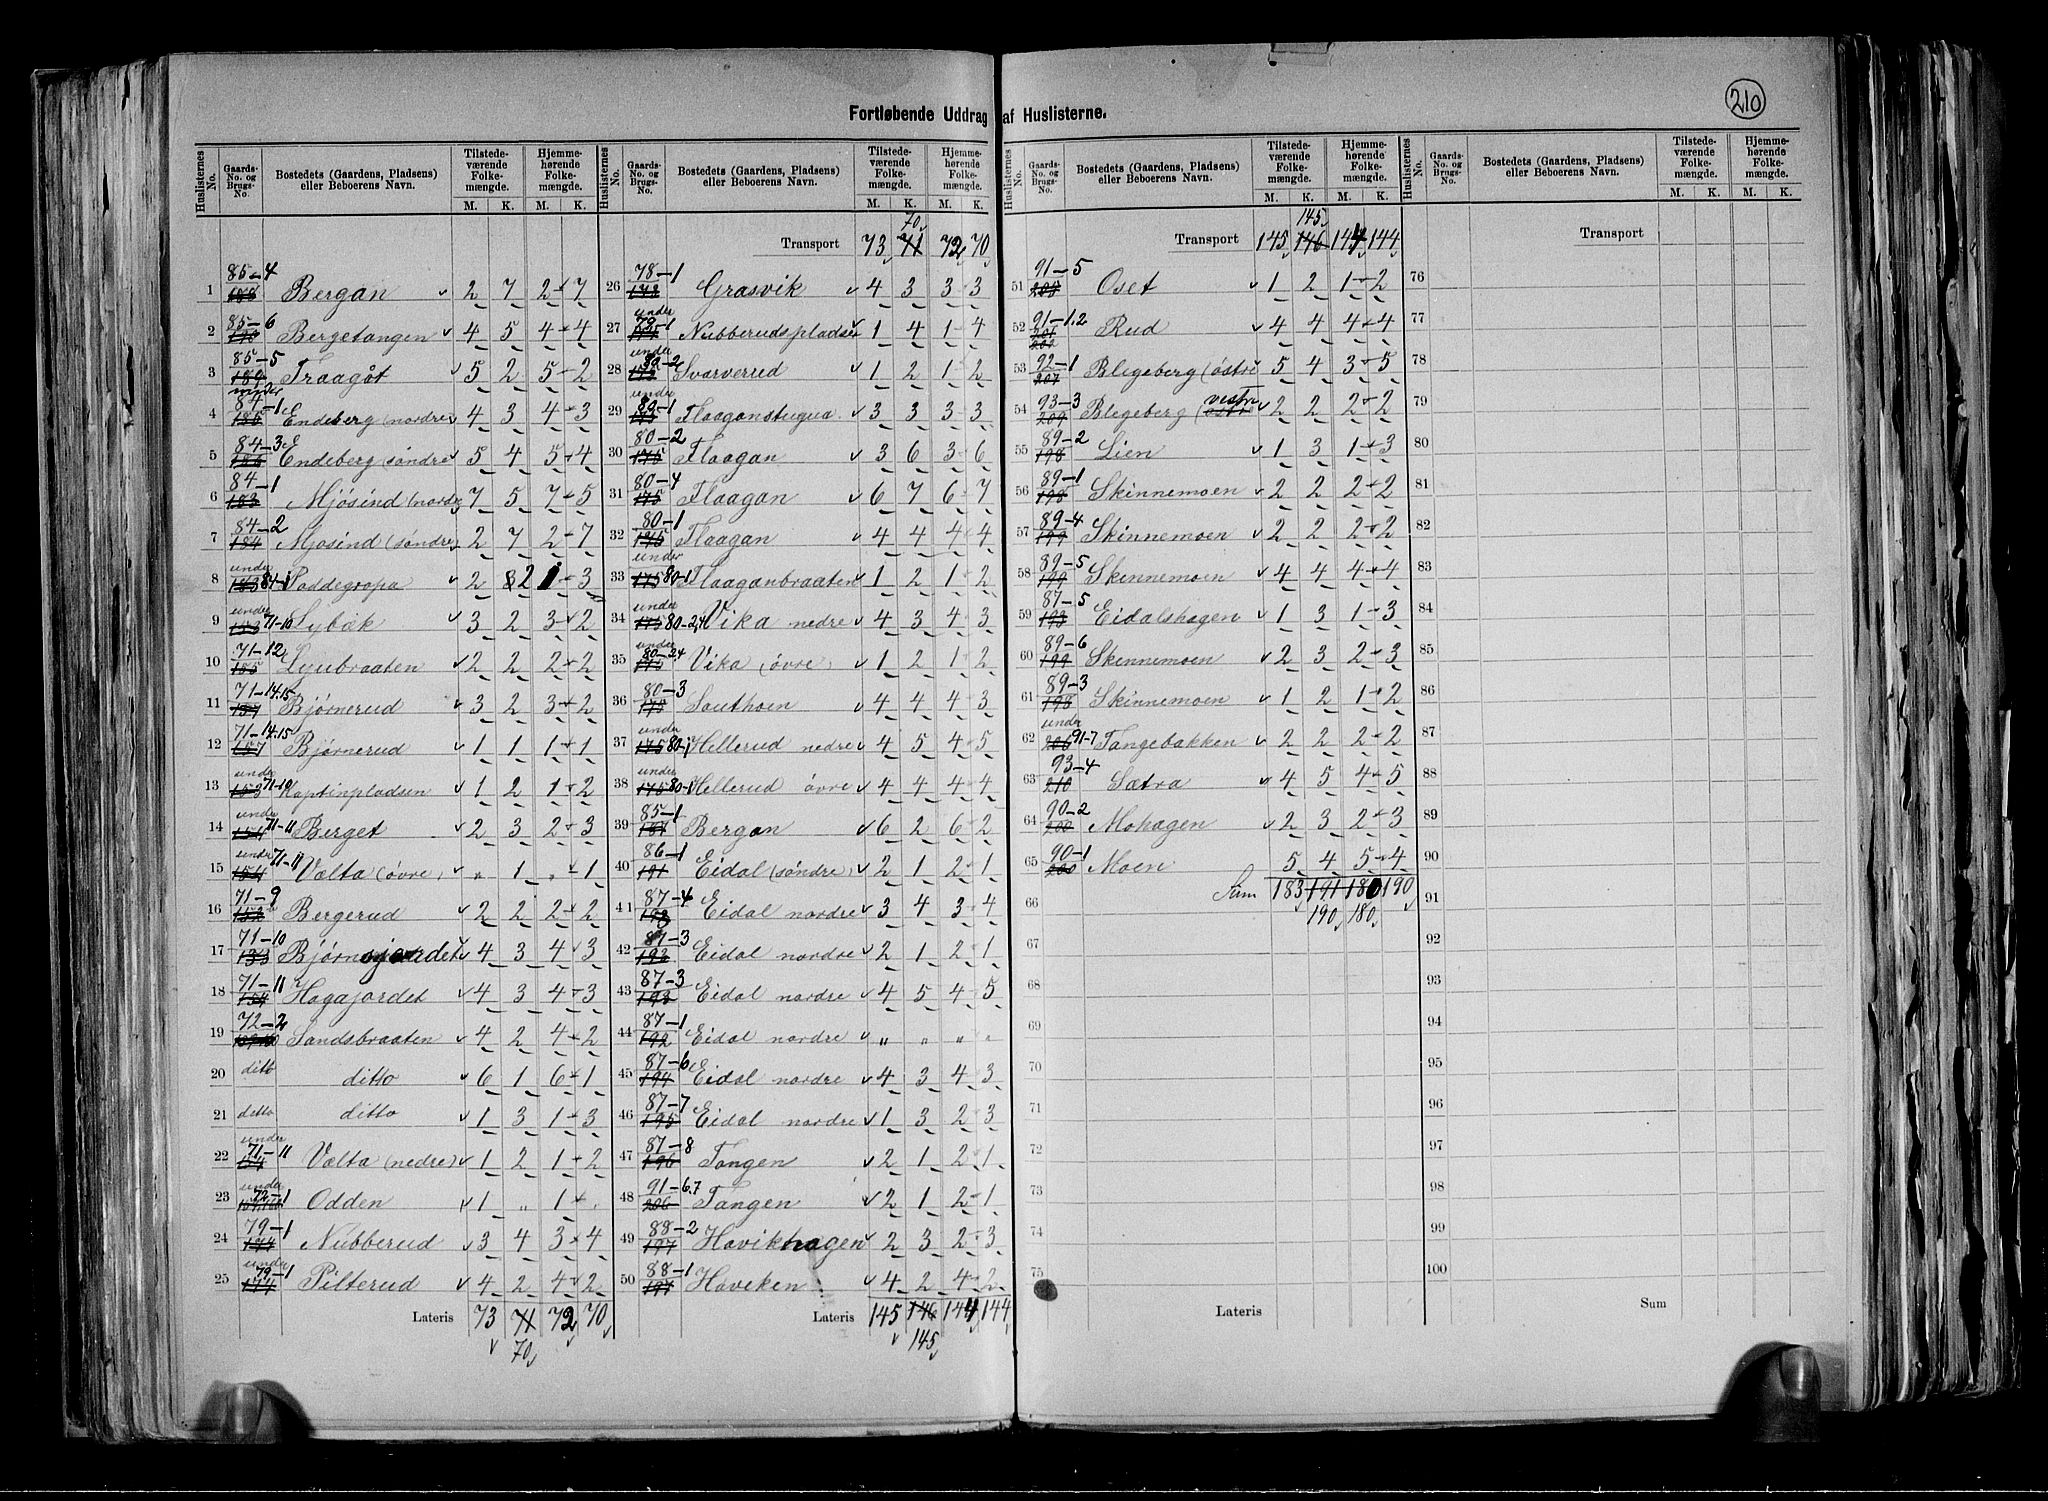 210
Fortløbende Uddrag af Huslisterne.
Huslisternes No. Gaards-No. og Brugs-No. Bostedets (Gaardens, Pladsens) eller Beboerens Navn. Tilstedeværende Folkemængde. M. K. Hjemmehørende Folkemængde. M. K.
1 85-4 Bergan 2 7 2 7
2 85-6 Bergetangen 4 5 4 4
3 85-5 Traagöt 5 2 5 2
4 84-1 Endeberg (nordre 4 3 4 3
5 84-3 Endeberg (søndre 5 4 5 4
6 84-1 183 Mjösind (nordre 7 5 7 5
7 84-2 184 Mjøsind (søndre 2 7 2 7
8 under 183 84-1 Paddegropa 2 2 1 3
9 under 153 71-10 Lybæk 3 2 3 2
10 71-12 155 Lynbraaten 2 2 2 2
11 71-14.15 157 Bjørnerud 3 2 3 2
12 71-14.15 157 Bjørnerud 1 1 1 1
13 under 153 71-10 Kaptinpladsen 1 2 1 2
14 under 154 71-11 Berget 2 3 2 3
15 under 154 71-11 Vælta (øvre) " 1 " 1
16 71-9 Bergerud 2 2 2 2
17 71-10 153 Bjørnsjordet 4 3 4 3
18 71-11 154 Hagajordet 4 3 4 3
19 72-2 Sandsbraaten 4 2 4 2
20 ditto ditto 6 1 6 1
21 ditto ditto 1 3 1 3
22 under 71-11 154 Vælta (nedre) 1 2 1 2
23 under 72-1 Odden 1 " 1 "
24 79-1 174 Nubberud 3 4 3 4
25 under 79-1 174 Pilterud 4 2 4 2
Lateris 73 71 72 70
70
70
Transport 73 71 72 70
26 78-1 173 Grasvik 4 3 3 3
27 under 79-1 Nubberudspladsen 1 4 1 4
28 under Svarverud 1 2 1 2
29 under 80-1 175 Flaaganstugua 3 3 3 3
30 80-2 175 Flaagan 3 6 3 6
31 80-4 175 Flaagan 6 7 6 7
32 80-1 175 Flaagan 4 4 4 4
33 under 175 80-1 Flaaganbraaten 1 2 1 2
34 under 175 80-2,4 Vika nedre 4 3 4 3
35 under 80-2.4 175 Vika (øvre) 1 2 1 2
36 80-3 175 Sauthoen 4 4 4 3
37 under 175 80-1 Hellerud nedre 4 5 4 5
38 under 175 80-1 Hellerud øvre 4 4 4 4
39 85-1 Bergan 6 2 6 2
40 86-1 191 Eidal (søndre) 2 1 2 1
41 87-4 193 Eidal nordre 3 4 3 4
42 87-3 193 Eidal nordre 2 1 2 1
43 87-3 193 Eidal nordre 4 5 4 5
44 87-1 192 Eidal nordre " " " "
45 87-6 194 Eidal nordre 4 3 4 3
46 87-7 195 Eidal nordre 1 3 2 3
47 87-8 196 Tangen 2 1 2 1
48 91-6.7 206 Tangen 2 1 2 1
49 88-2 197 Havikhagen 2 3 2 3
50 88-1 197 Haveken 4 2 4 2
Lateris 145 146 144 144
145
145
Transport 145 146 144 144
51 91-5 Oset 1 2 1 2
52 91-1.2 Rud 4 4 4 4
53 92-1 207 Blegeberg (östre 5 4 3 5
54 93-3 209 Blegeberg (østre vestre 2 2 2 2
55 89-2 198 Lien 1 3 1 3
56 89-1 198 Skinnemoen 2 2 2 2
57 89-4 199 Skinnemoen 2 2 2 2
58 89-5 199 Skinnemoen 4 4 4 4
59 87-5 193 Eidalshagen 1 3 1 3
60 89-6 199 Skinnemoen 2 3 2 3
61 89-3 198 Skinnemoen 1 2 1 2
62 under 206 91-7 Tangebakken 2 2 2 2
63 93-4 210 Sætra 4 5 4 5
64 90-2 200 Mohagen 2 3 2 3
65 90-1 200 Moen 5 4 5 4
66 Sum 183 191 180 190
190 180
67
68
69
70
71
72
73
74
75
Lateris
Transport
76
77
78
79
80
81
82
83
84
85
86
87
88
89
90
91
92
93
94
95
96
97
98
99
100
Sum